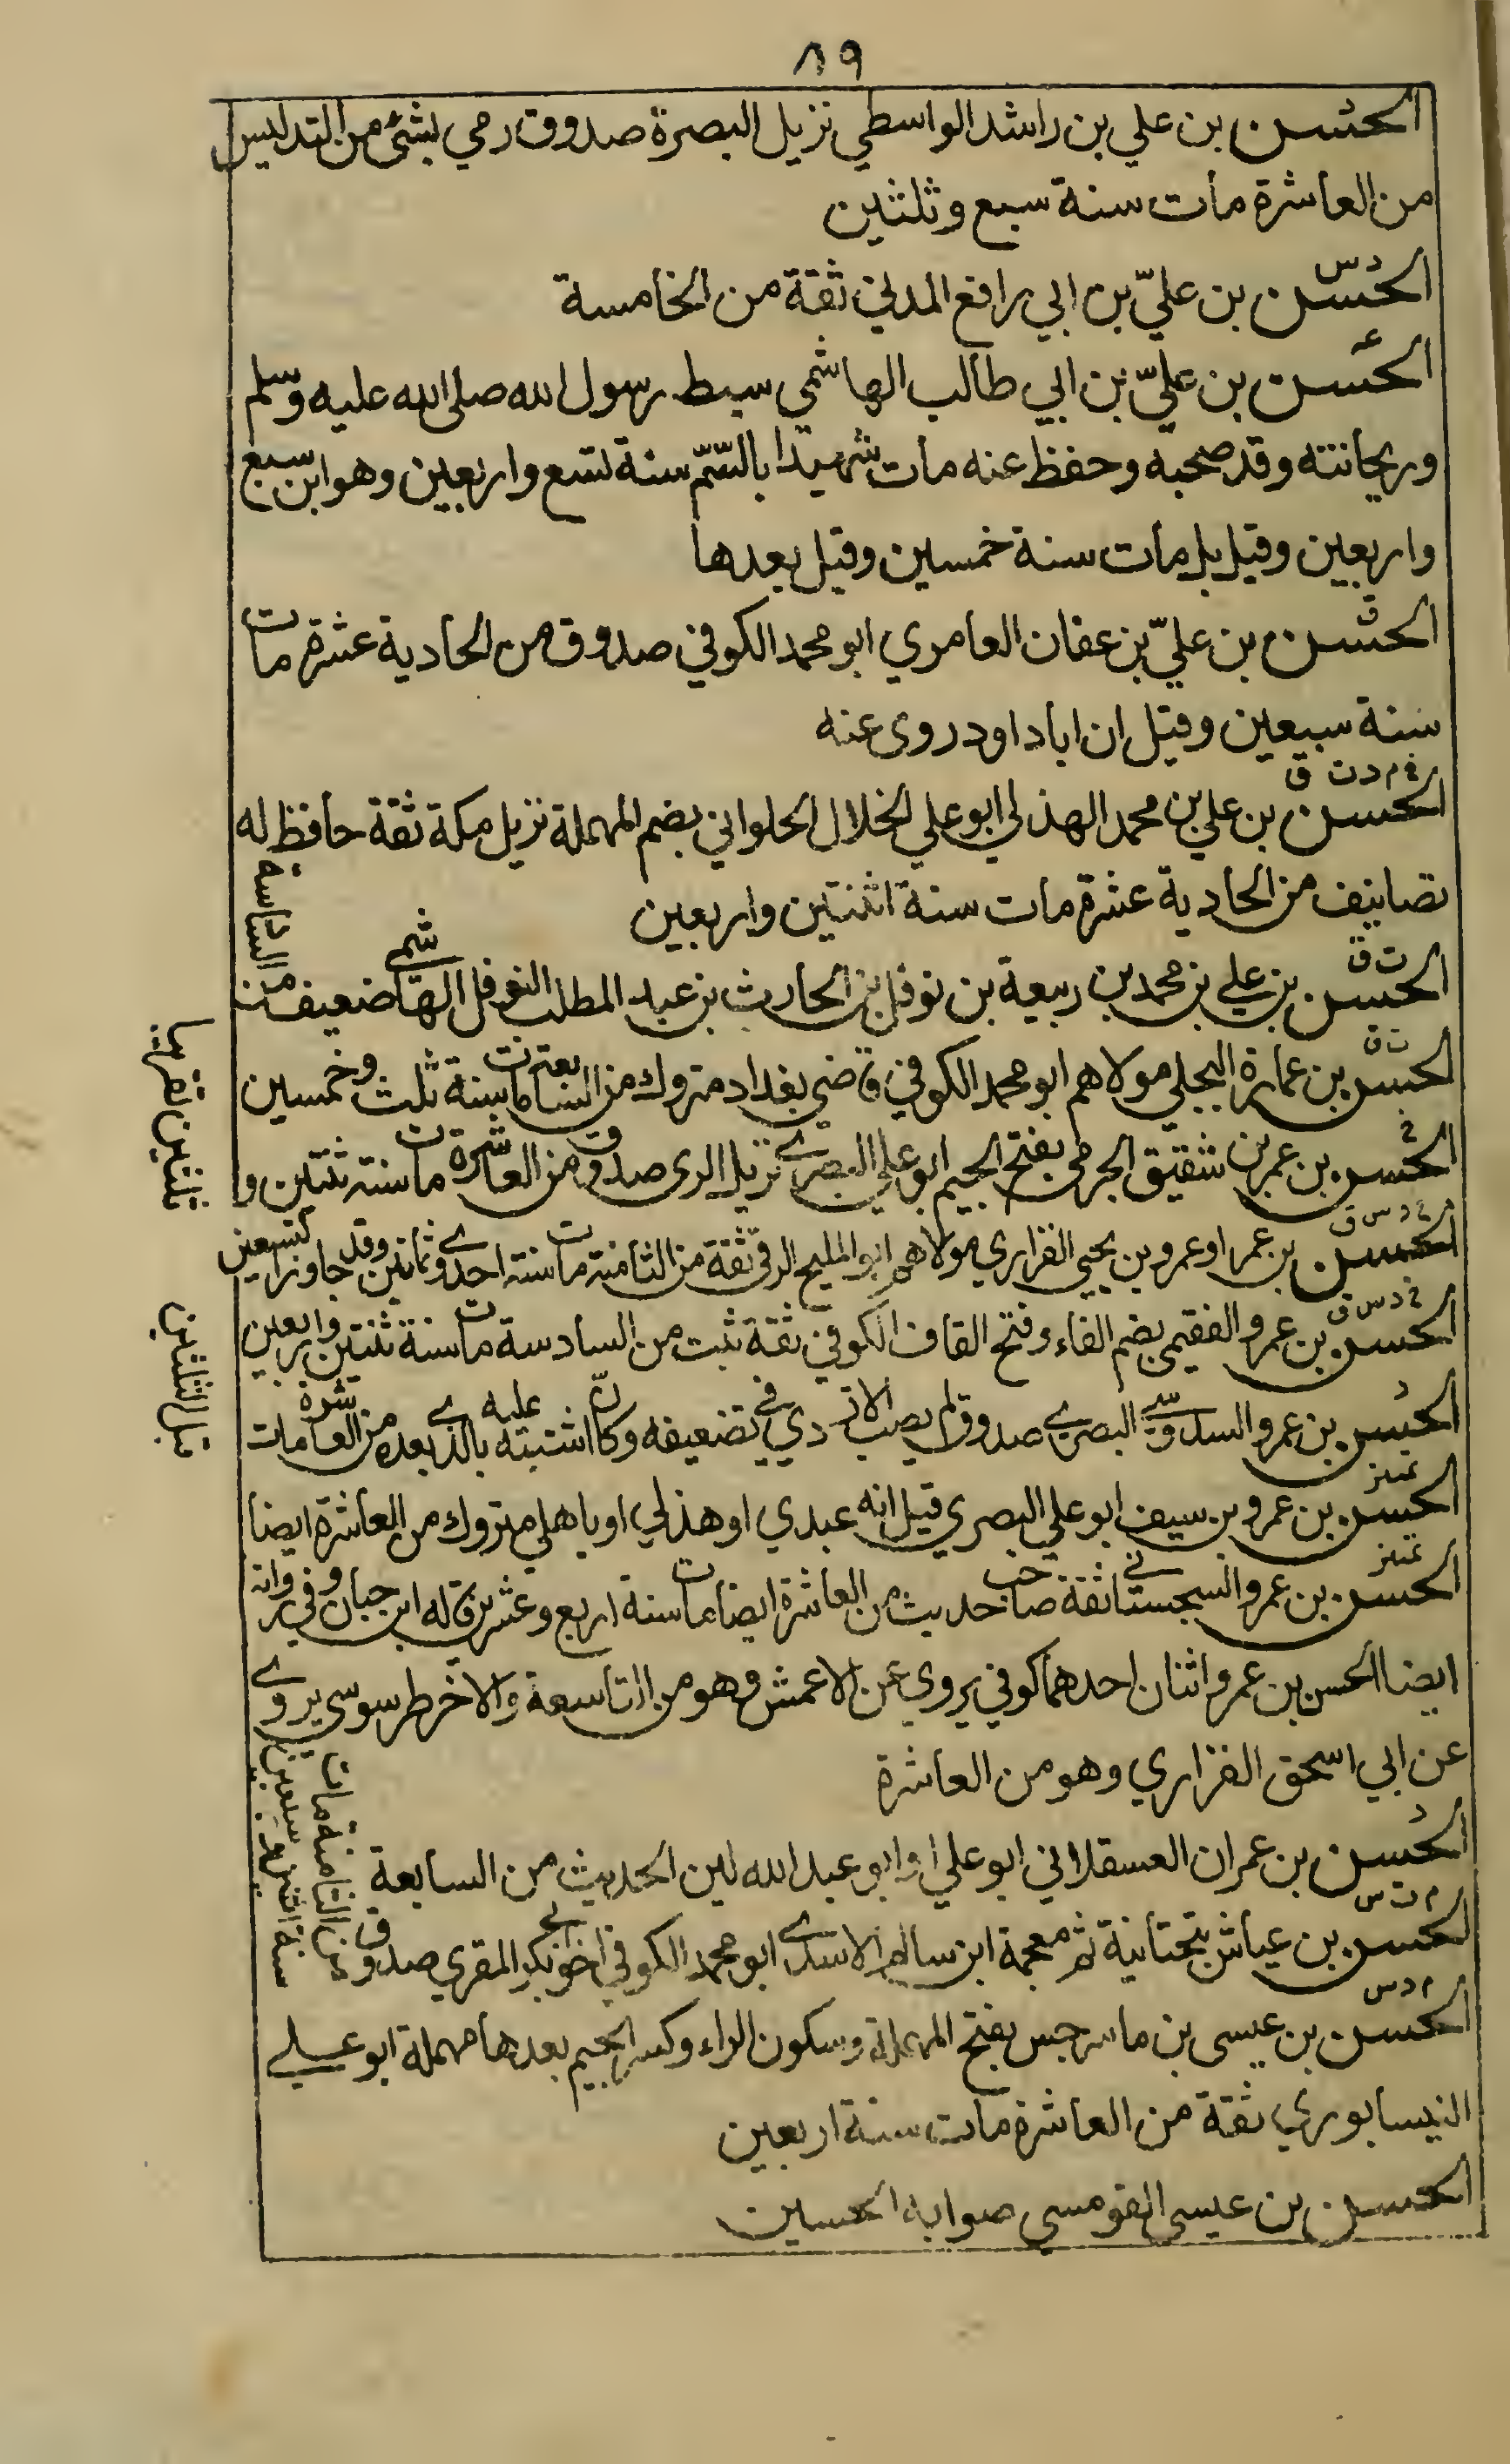 ٨٩
الحسن بن علي بن راشد الواسطي نزيل البصرة صدوق رمي بشئ من التدليس
من العاشرة مات سنة سبع وثلثين
د س
الحسن بن عليّ بن ابي رافع المدني ثقة من الخامسة
عه
الحسن بن عليّ بن ابي طالب الهاشمي سبط رسول الله صلى الله عليه وسلم
وريحانته وقد صحبه وحفظ عنه مات شهيدا بالسّمّ سنة تسع واربعين وهو ابن سبع
واربعين وقيل بل مات سنة خمسين وقيل بعدها
ق
الحسن بن عليّ بن عفان العامري ابو محمد الكوفي صدوق من الحادية عشرة مات
سنة سبعين وقيل ان ابا داود روى عنه
خ م د ت ق
الحسن بن علي بن محمد الهذلي ابو علي الخلال الحلواني بضم المهملة نزيل مكة ثقة حافظ له
تصانيف من الحادية عشرة مات سنة اثنتين واربعين
ت ق
الحسن بن علي بن محمد بن ربيعة بن نوفل بن الحارث بن عبد المطلب النوفلي الهاشمي ضعيف من
السادسة
ت ق
الحسن بن عمارة البجلي مولاهم ابو محمد الكوفي قاضي بغداد متروك من السابعة مات سنة ثلث وخمسين
خ
الحسن بن عمر بن شقيق الجرمي بفتح الجيم ابو علي البصري نزيل الري صدوق من العاشرة مات سنة ثنتين و
ثلثين تقريبا
خ د س ق
الحسن بن عمر او عمرو بن يحيى الفزاري مولاهم ابو المليح الرقي ثقة من الثامنة مات سنة احدى وثمانين وقد جاوز التسعين
خ د س ق
الحسن بن عمرو الفقيمي بضم الفاء وفتح القاف الكوفي ثقة ثبت من السادسة مات سنة ثنتين واربعين
د
الحسن بن عمرو السدوسي البصري صدوق لم يصب الازدي في تضعيفه وكانّه اشتبه عليه بالذي بعده من العاشرة مات
قبل الثلثين
تمييز
الحسن بن عمرو بن سيف ابو علي البصري قيل انه عبدي او هذلي او باهلي متروك من العاشرة ايضا
تمييز
الحسن بن عمرو السجستاني ثقة صاحب حديث من العاشرة ايضا مات سنة اربع وعشرين قاله ابن حبان وفي رواته
ايضا الحسن بن عمرو اثنان احدهما كوفي يروي عن الاعمش وهو من التاسعة والاخر طرسوسي يروي
عن ابي اسحق الفزاري وهو من العاشرة
د
الحسن بن عمران العسقلاني ابو علي او ابو عبد الله لين الحديث من السابعة
م ت س
الحسن بن عياش بتحتانية ثم معجمة ابن سالم الاسدي ابو محمد الكوفي اخو ابي بكر المقري صدوق
من الثامنة مات
سنة اثنتين وسبعين
م د س
الحسن بن عيسى بن ماسرجس بفتح المهملة وسكون الراء وكسر الجيم بعدها مهملة ابو علي
النيسابوري ثقة من العاشرة مات سنة اربعين
الحسن بن عيسى القومسي صوابه الحسين